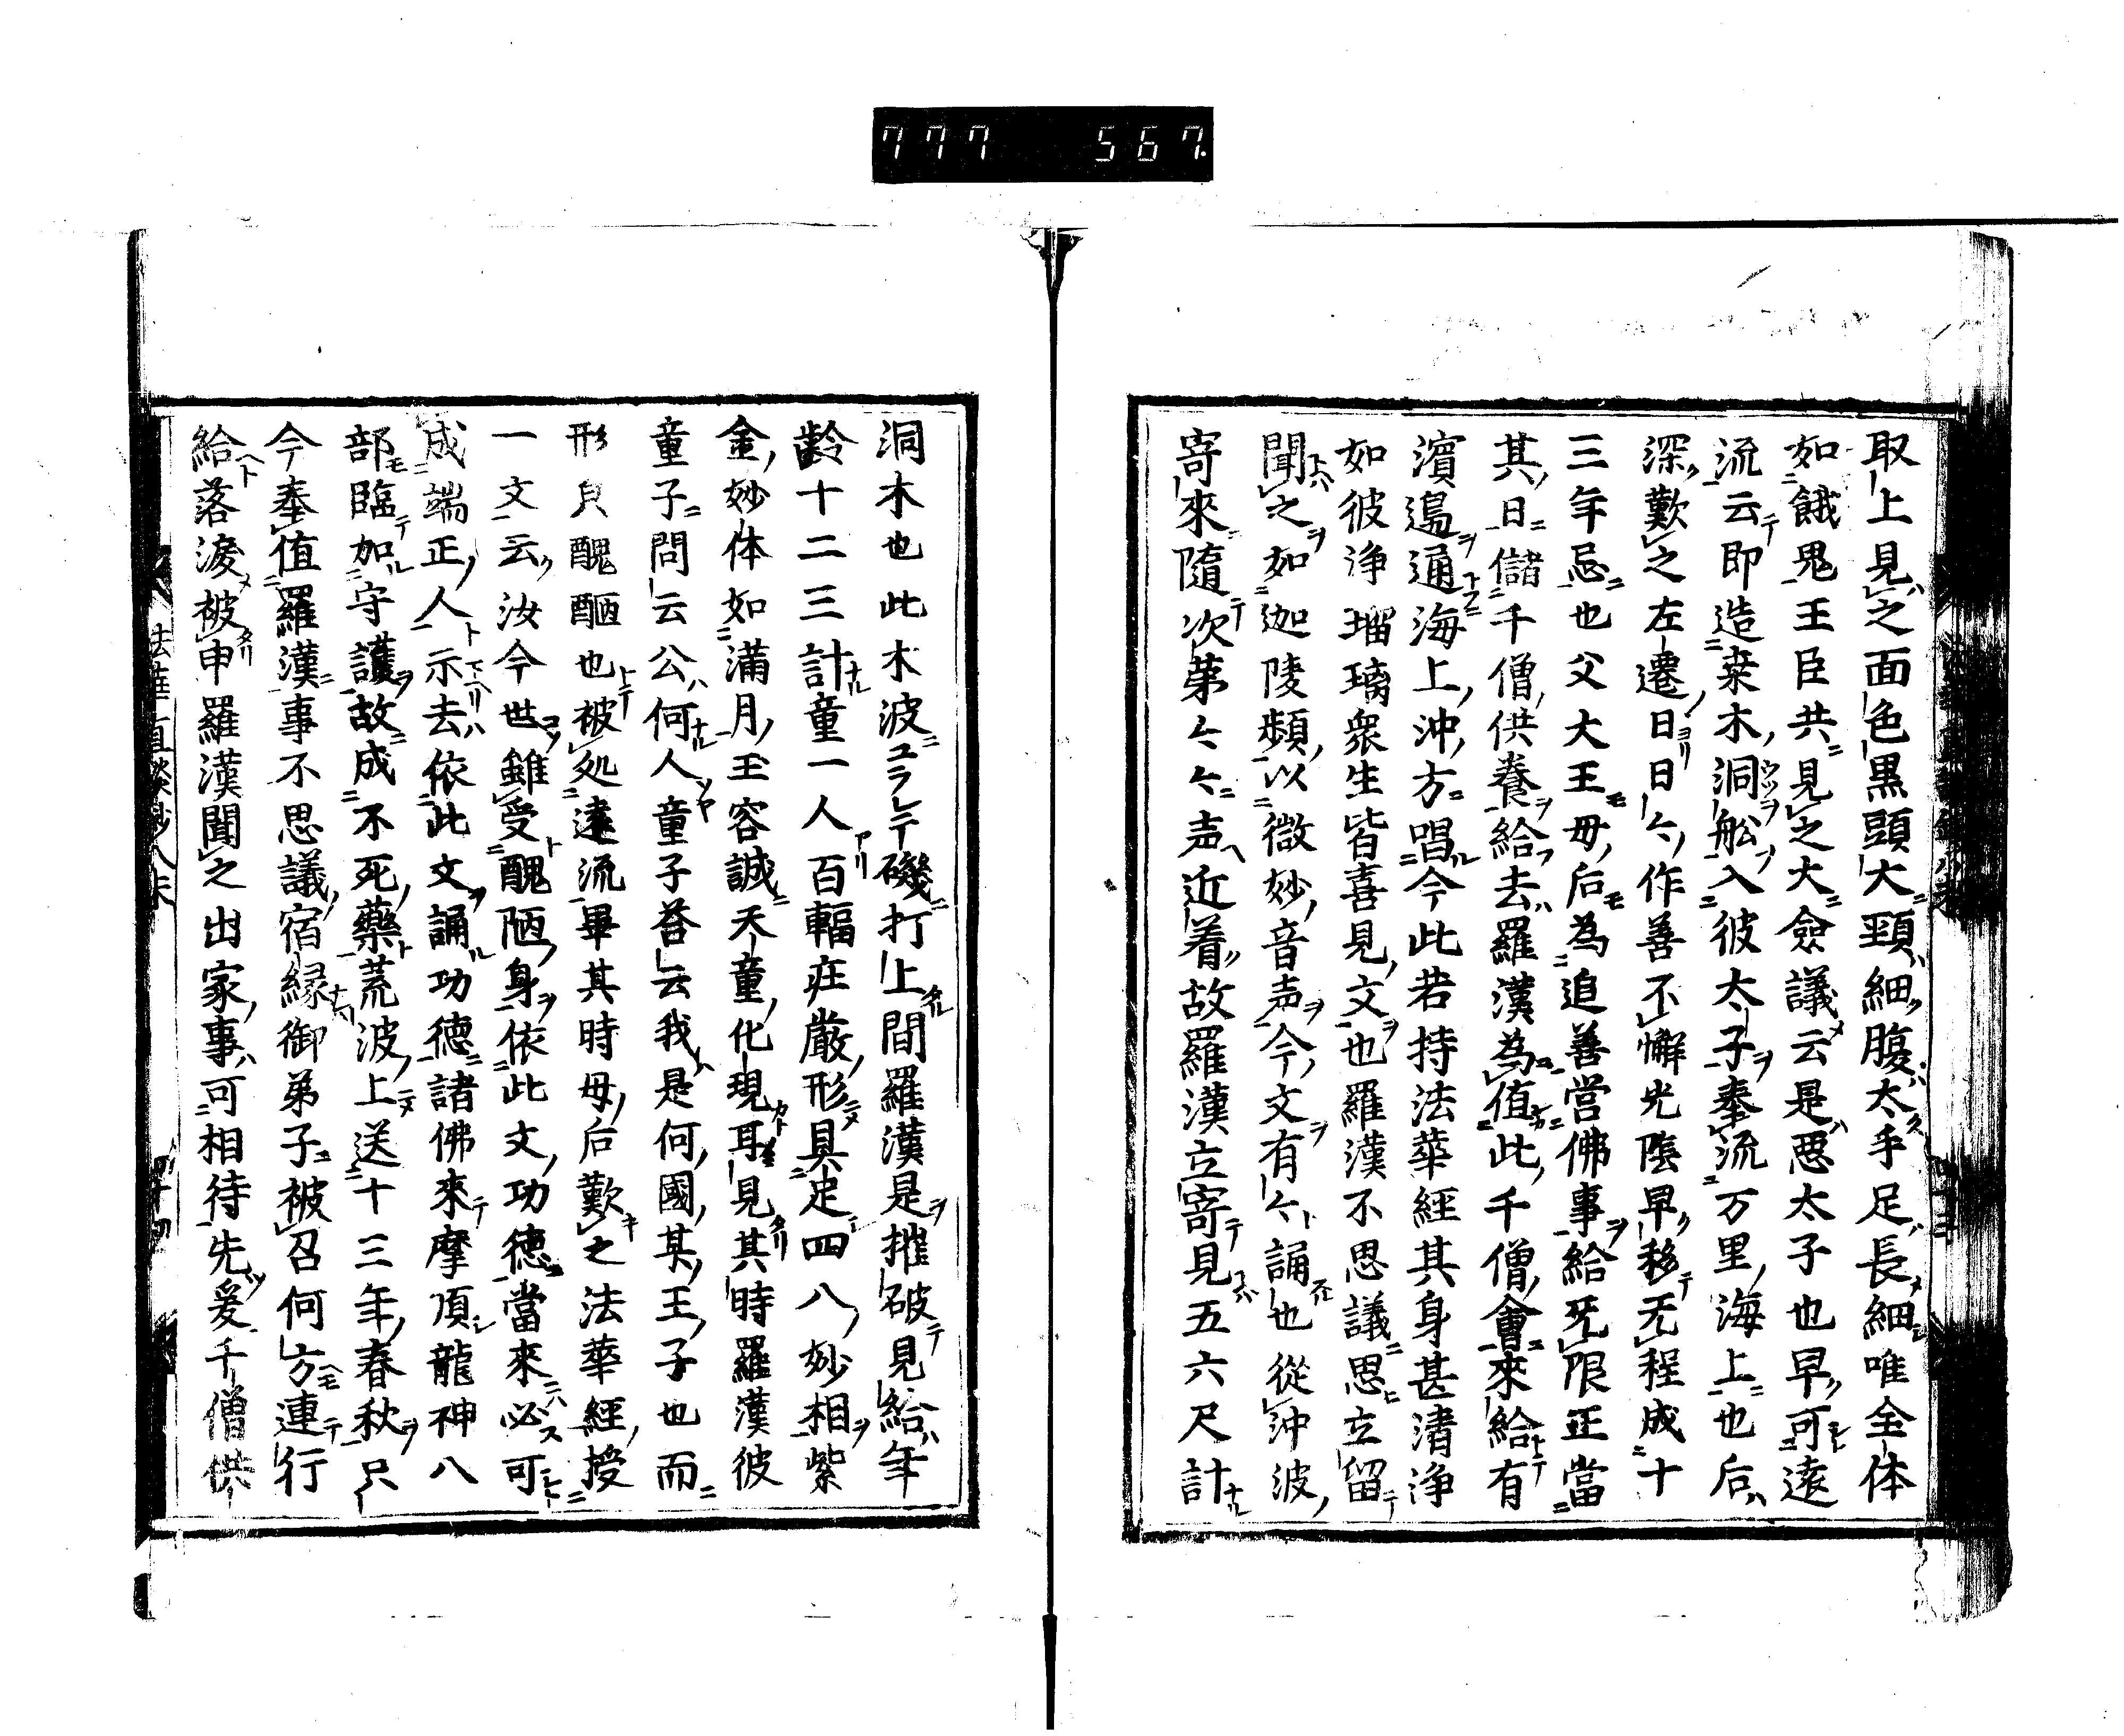 777 567.
取上見之面色黒頭大頸細腹太手足長細唯全体
如餓鬼王臣共見之大僉議云是悪太子也早可遠
流云即造桒木洞舩入彼太子奉流万里海上也后
深歎之左遷日日々作善不懈光陰早移无程成十
三年忌也父大王毋后為追善営佛事給旡限正當
其日儲千僧供養給去羅漢為値此千僧會來給有
濵邉通海上沖方唱今此若持法華經其身甚清浄
如彼浄瑠璃衆生皆喜見文也羅漢不思議思立留
聞之如迦陵頻以微妙音声今文有々誦也從沖波
寄來隨次第々々声近着故羅漢立寄見五六尺計
洞木也此木波ユラレテ磯打上間羅漢是摧破見給年
齡十二三計童一人百輻荘厳形具足四八妙相紫
金妙体如滿月玉容誠天童化現耳見其時羅漢彼
童子問云公何人童子荅云我是何國某王子也而
形皃醜陋也被処遠流畢其時母后歎之法華經授
一文云汝今世雖受醜陋身依此文功德當來必可
成端正人示去依此文誦功德諸佛來摩頂龍神八
部臨加守護故成不死藥荒波上送十三年春秋只
今奉値羅漢事不思議宿縁御弟子被召何方連行
給落淚被申羅漢聞之出家事可相待先爰千僧供
法華直談鈔八末